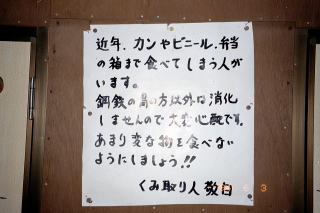 近年、カンやビニール、弁当
の箱まで食べてしまう人が
います。
鋼鉄の胃の方以外は消化
しませんので大変心配です。
あまり変な物を食べない
ようにしましょう!!
くみ取り人 敬白
3